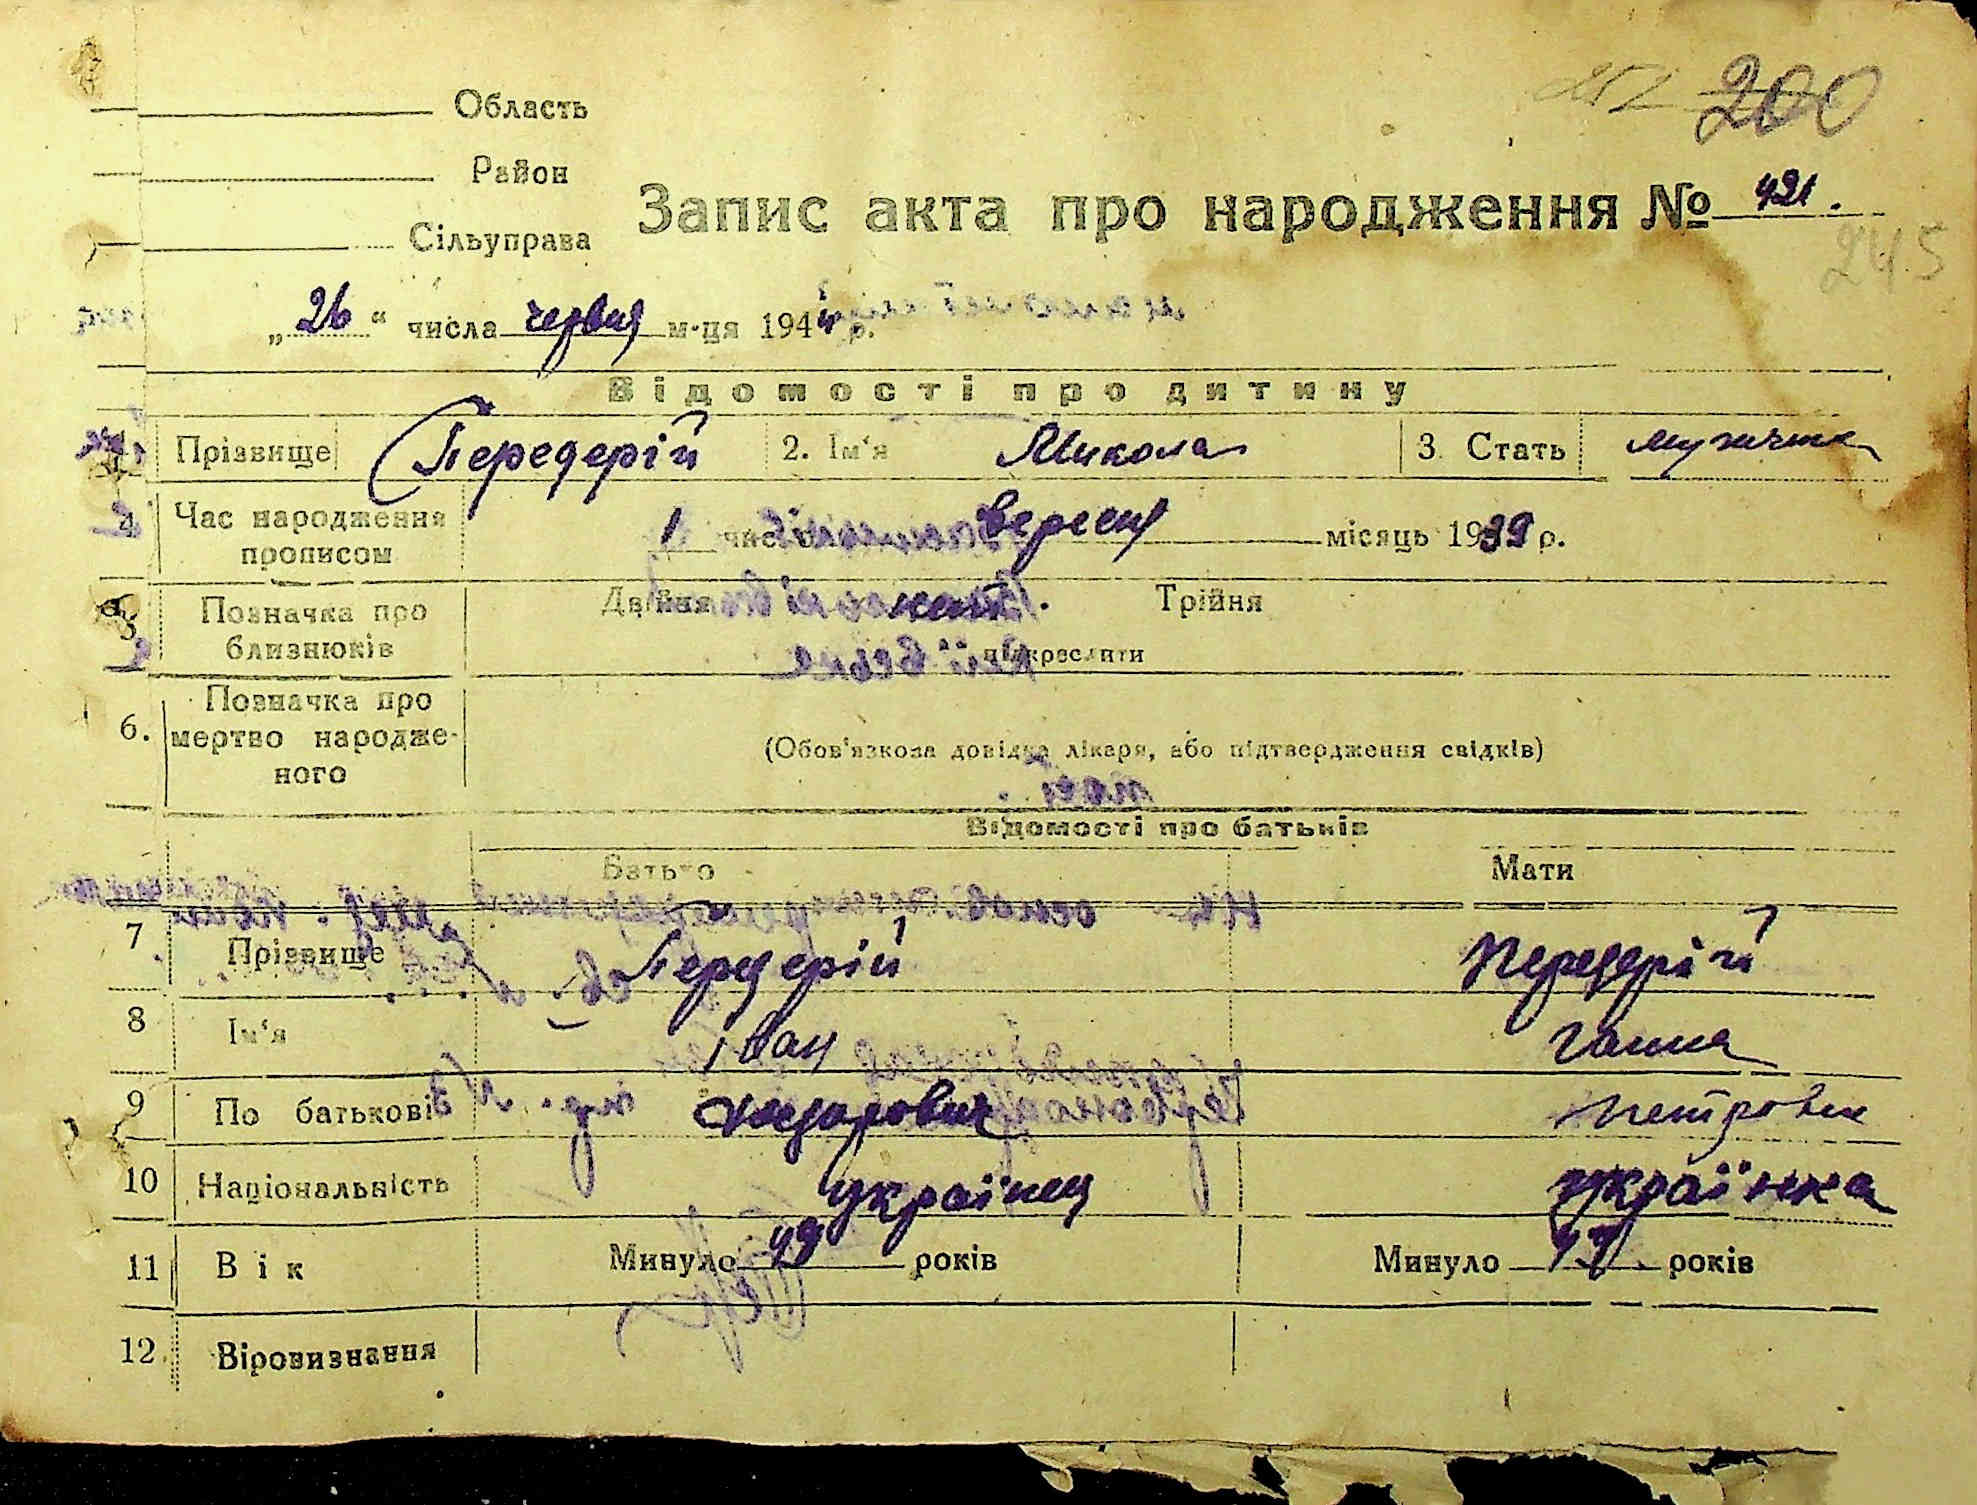 200
Область
Район
Сільуправа
Запис акта про народження № 421.
245
„26“ числа червня м-ця 1944 р.
Відомості про дитину
Прізвище Передерій 2. Ім‘я Микола 3. Стать мужчина
4 Час народження прописом 1 числа вересня місяць 1939 р.
5 Позначка про близнюків Двійня нет. Трійня
підкреслити
6. Позначка про мертво народженого
(Обов'язкова довідка лікаря, або підтвердження свідків)
Відомості про батьків
Батько Мати
7 Прізвище Передерій Передерій
8 Ім‘я Іван Ганна
9 По батькові Петровна
10 Національність українец українка
11 Вік Минуло 49 років Минуло років
12. Віровизнання